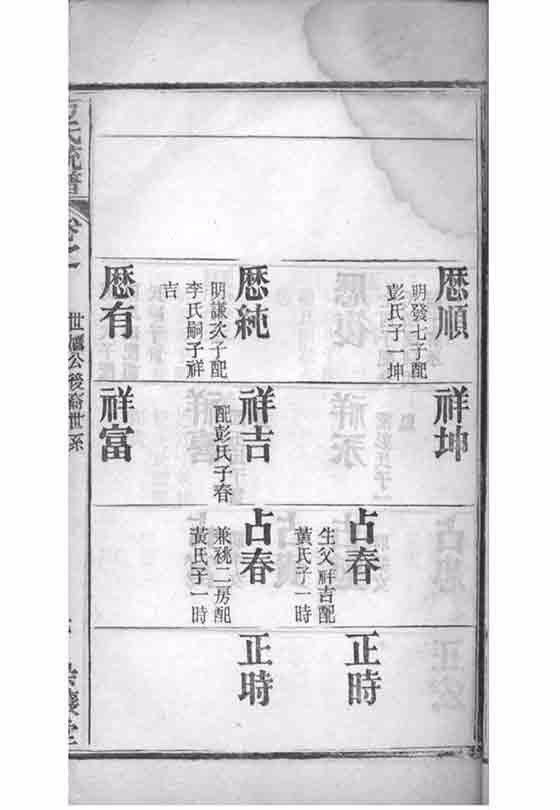 厯順
明發七子配
彭氏子一坤
祥坤
占春
生父祥吉配
黃氏子一時
正時
厯純
明謙次子配
李氏嗣子祥
吉
祥吉
配彭氏子春
占春
兼祧二房配
黃氏子一時
正時
厯有
祥富
氏統譜
卷之
世公後裔世系
堂